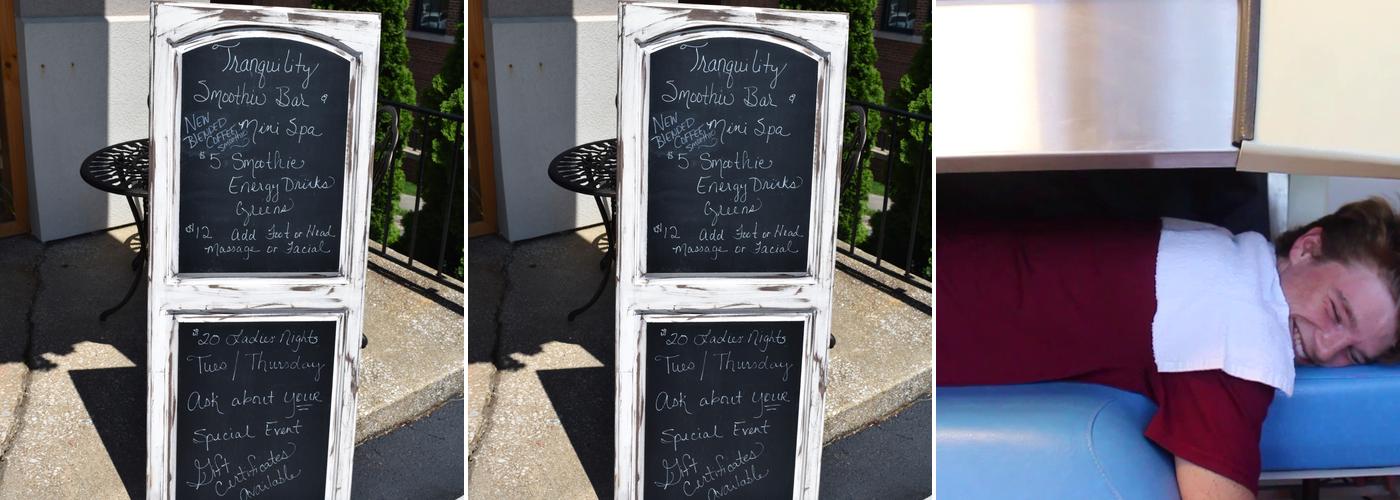 Tranquility
Smoothie Bar &
NEW BLENDED COFFEE SMOOTHIE
Mini Spa
$5 Smoothie
Energy Drinks
Greens
$12 Add Foot or Head
Massage or Facial
$20 Ladies Nights
Tues / Thursday
Ask about your
Special Event
Gift
Certificates
Available
Tranquility
Smoothie Bar &
NEW BLENDED COFFEE SMOOTHIE
Mini Spa
$5 Smoothie
Energy Drinks
Greens
$12 Add Foot or Head
Massage or Facial
$20 Ladies Nights
Tues / Thursday
Ask about your
Special Event
Gift
Certificates
Available